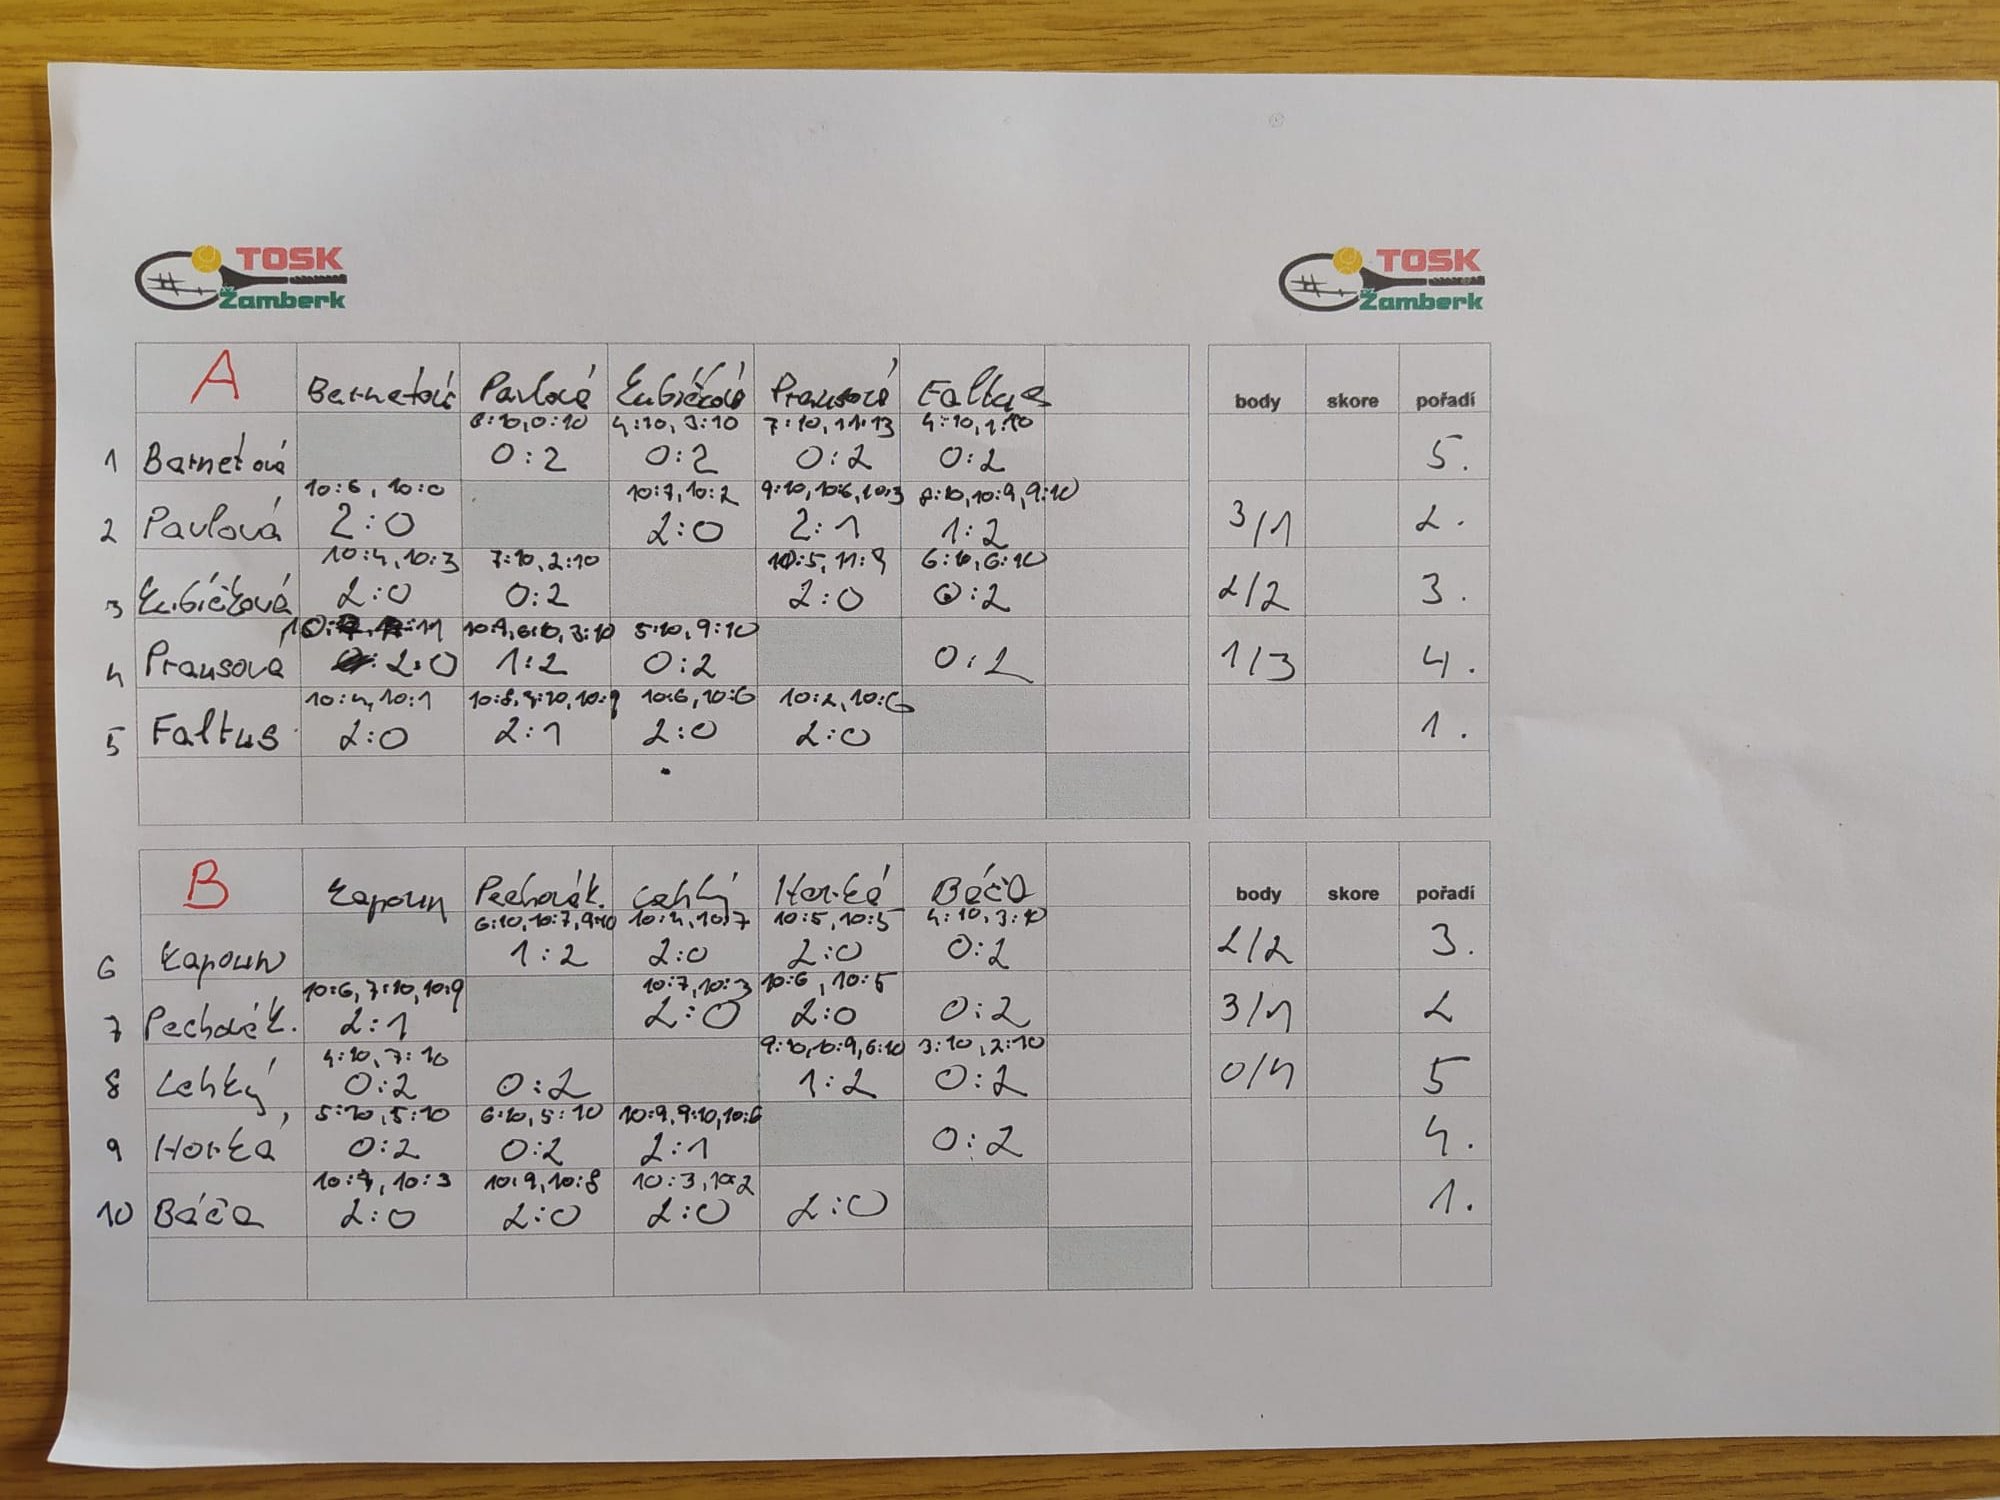 TOSK
Žamberk
TOSK
Žamberk
A Barnetová Pavlová Kubíčková Prausová Faltus body skore pořadí
8:10, 0:10 4:10, 3:10 7:10, 11:13 4:10, 1:10
1 Barnetová 0:2 0:2 0:2 0:2 5.
10:6, 10:0 10:7, 10:2 9:10, 10:6, 10:3 8:10, 10:9, 9:10
2 Pavlová 2:0 2:0 2:1 1:2 3/1 2.
10:4, 10:3 7:10, 2:10 10:5, 11:9 6:10, 6:10
3 Kubíčková 2:0 0:2 2:0 0:2 2/2 3.
10:9, 6:10, 3:10 5:10, 9:10
4 Prausová 2:0 1:2 0:2 0:2 1/3 4.
10:4, 10:1 10:8, 9:10, 10:9 10:6, 10:6 10:2, 10:6
5 Faltus 2:0 2:1 2:0 2:0 1.
B Kapoun Pechováék. Lehký Horká Báča body skore pořadí
6:10, 10:7, 9:10 10:4, 10:7 10:5, 10:5 4:10, 3:10
6 Kapoun 1:2 2:0 2:0 0:2 2/2 3.
10:6, 7:10, 10:9 10:7, 10:3 10:6, 10:5
7 2:1 2:0 2:0 0:2 3/1 2
4:10, 7:10 9:10, 10:9, 6:10 3:10, 2:10
8 Lehký 0:2 0:2 1:2 0:2 0/4 5
5:10, 5:10 6:10, 5:10 10:9, 9:10, 10:6
9 Horká 0:2 0:2 2:1 0:2 4.
10:4, 10:3 10:9, 10:8 10:3, 10:2
10 Báča 2:0 2:0 2:0 2:0 1.